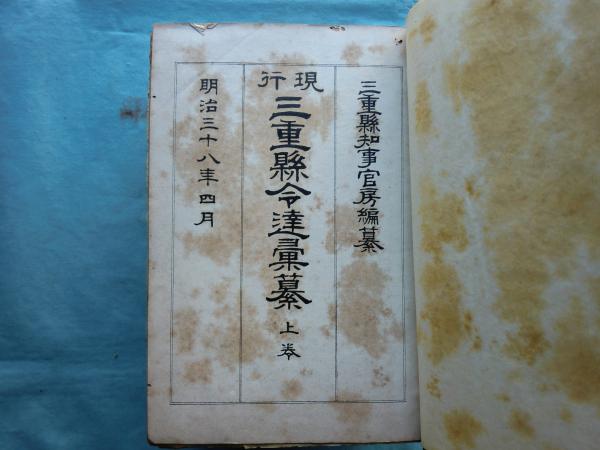 三重縣知事官房編纂
現行
三重縣令達彙纂 上卷
明治三十八年四月